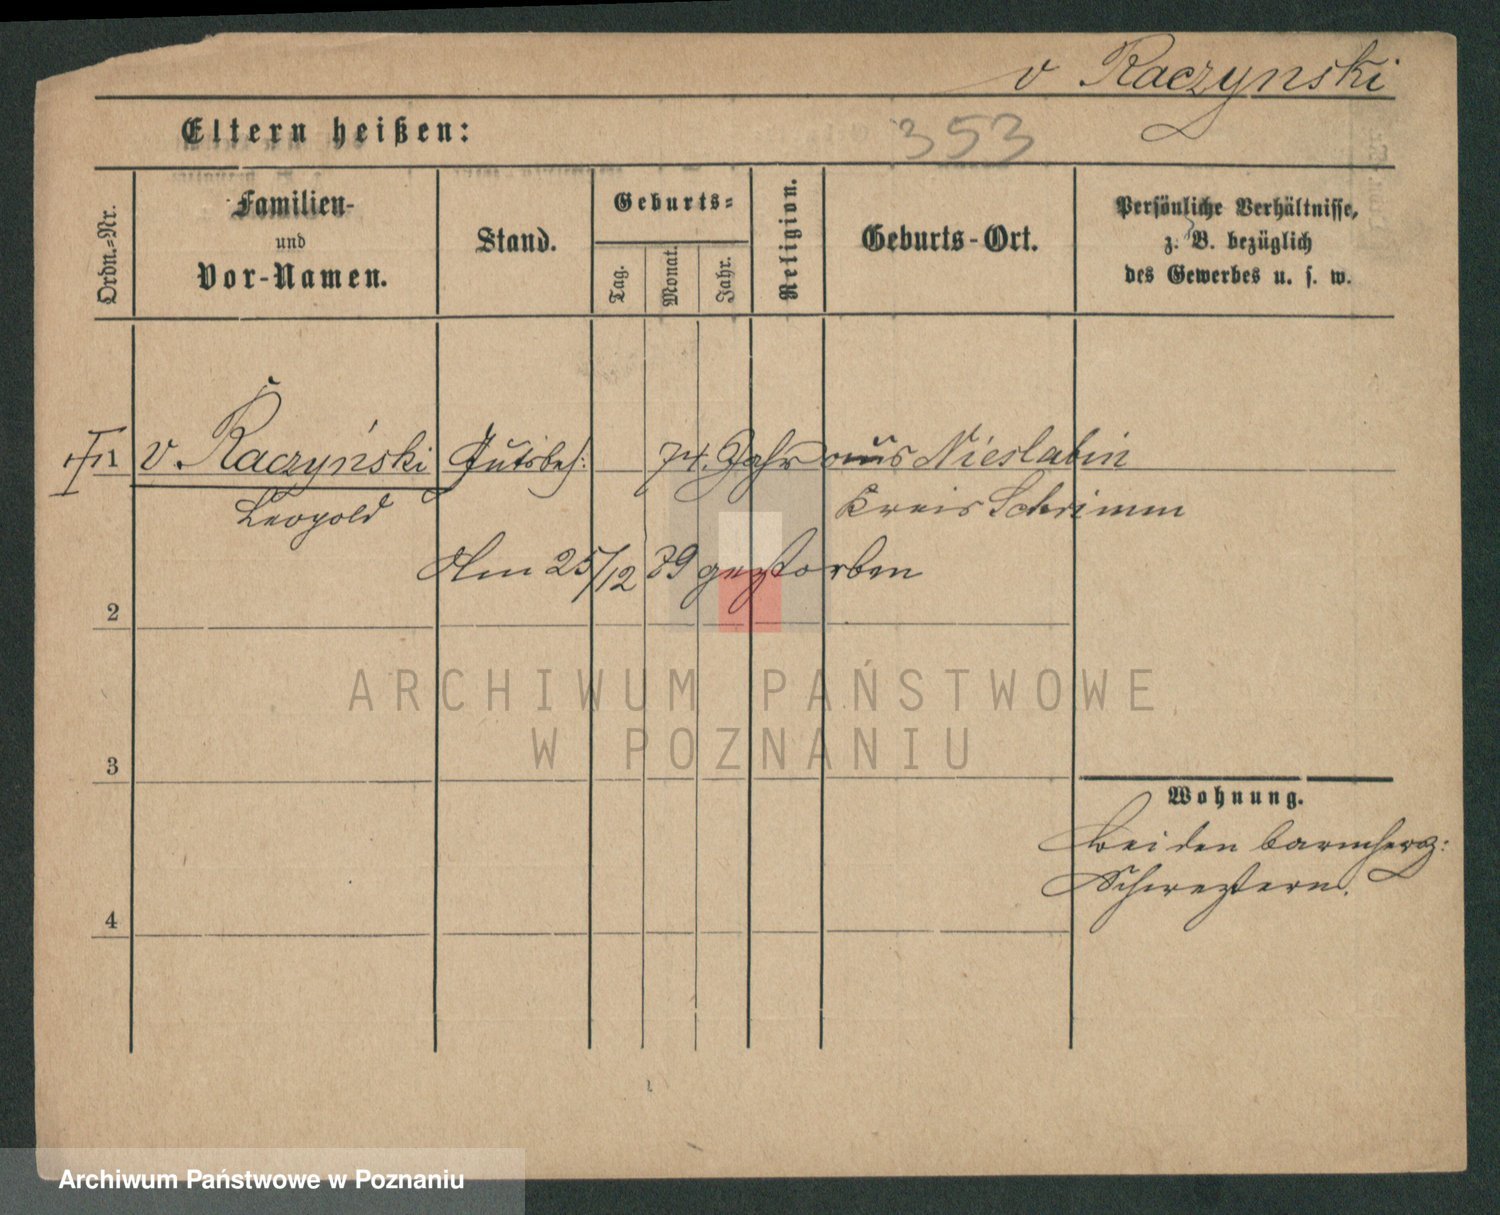 v Raczynski
Eltern heißen:
353
Ordn.-Nr.
Familien-
und
Vor-Namen.
Stand.
Geburts-
Tag.
Monat.
Jahr.
Religion.
Geburts-Ort.
Persönliche Verhältnisse,
z. B. bezüglich
des Gewerbes u. s. w.
1 v. Raczyński Gutsbes: 74. Jahr aus Nieslabin
Leopold Kreis Schrimm
Am 25/12 89 gestorben
2
3
4
Wohnung.
bei den barmherz:
Schwestern.
ARCHIWUM PAŃSTWOWE
W POZNANIU
Archiwum Państwowe w Poznaniu